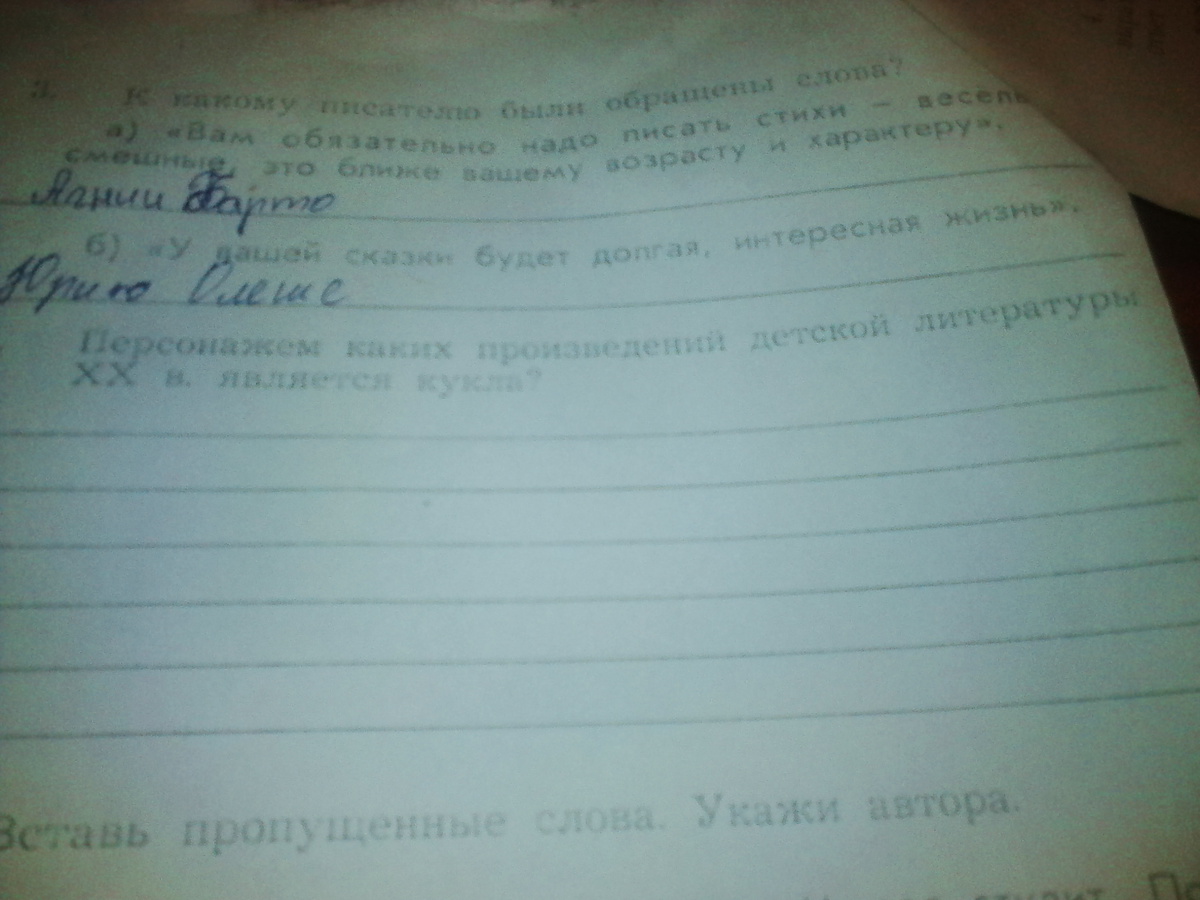 3. К какому писателю были обращены слова?
а) «Вам обязательно надо писать стихи – веселые
смешные, это ближе вашему возрасту и характеру».
Агнии Барто
б) «У вашей сказки будет долгая, интересная жизнь».
Юрию Олеше
Персонажем каких произведений детской литературы
XX в. является кукла?
Вставь пропущенные слова. Укажи автора.